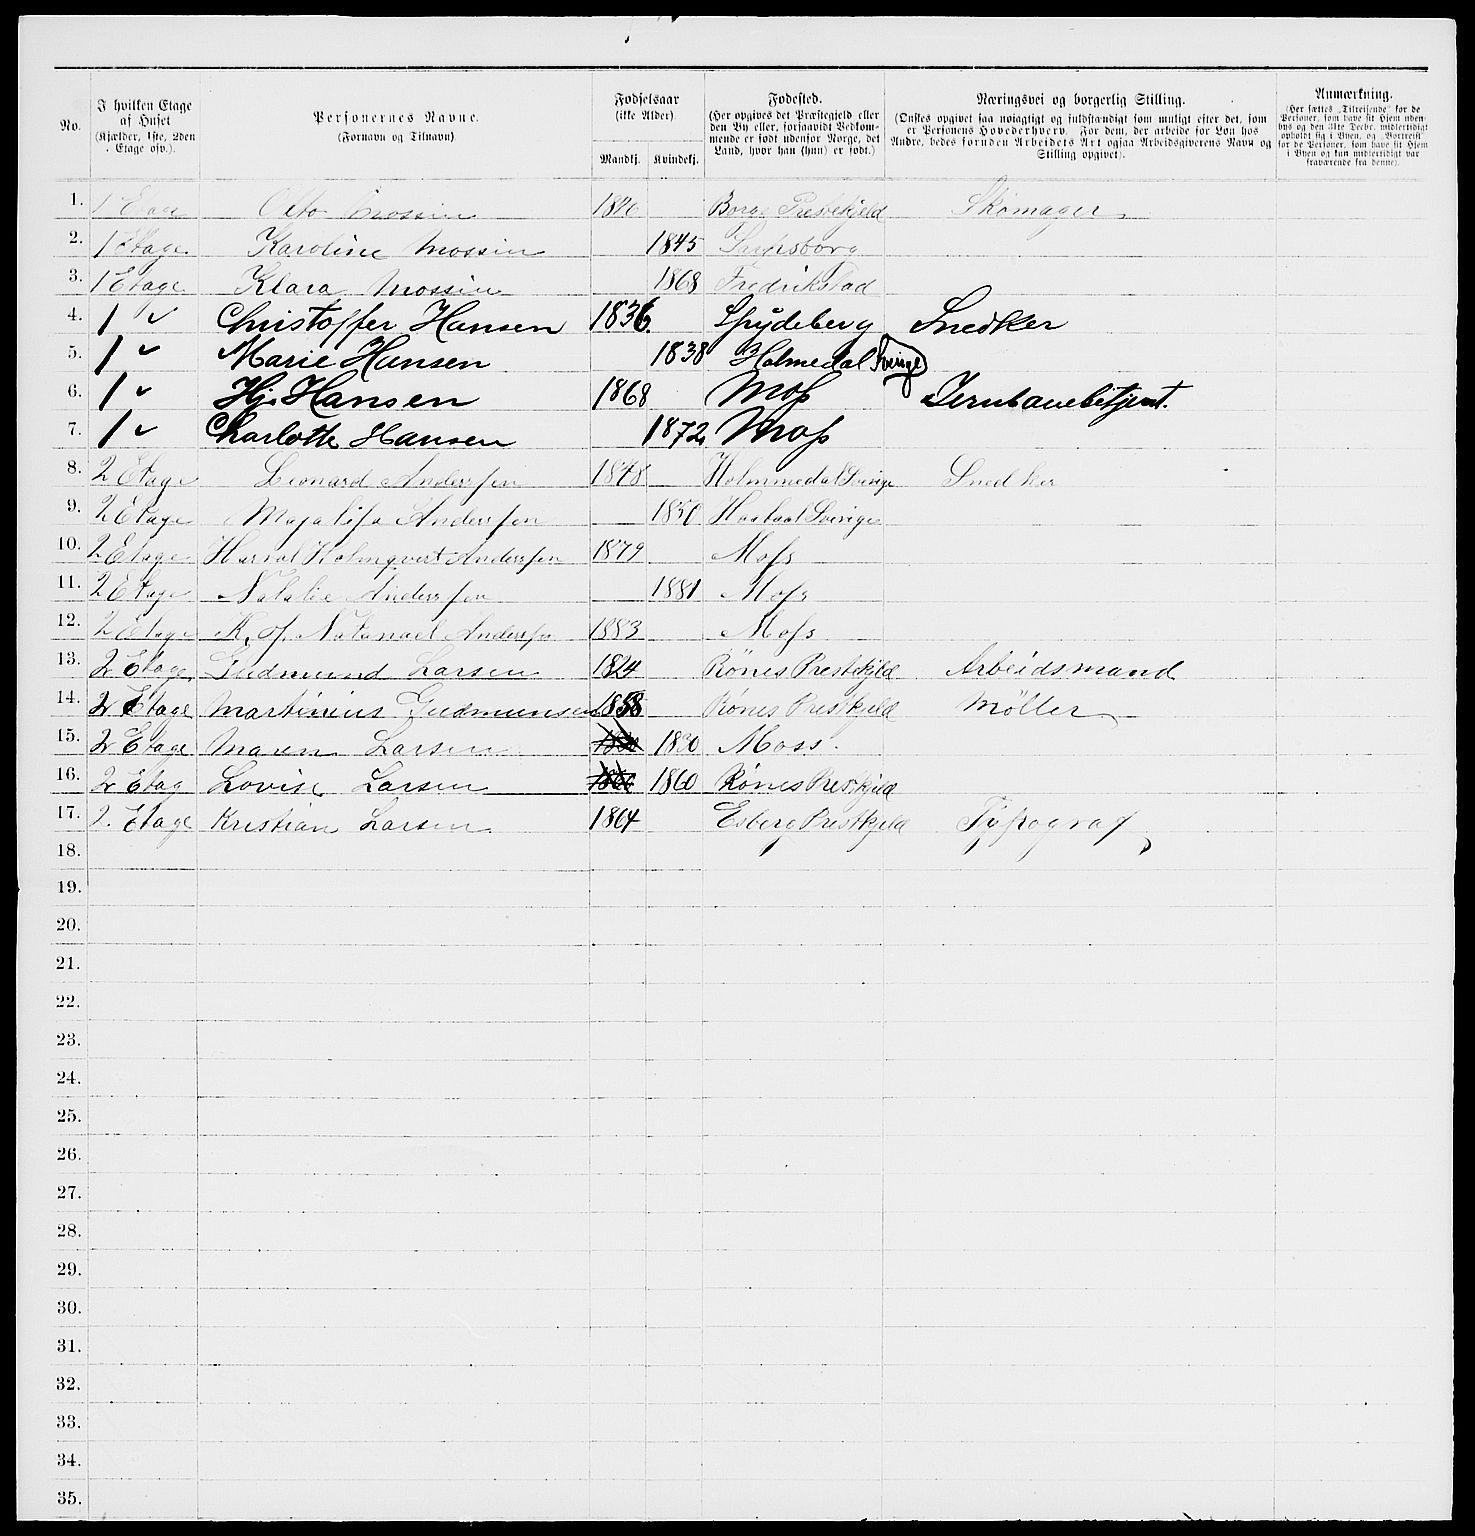 No. | I hvilken Etage af Huset (Kjælder, 1ste, 2den Etage osv.). | Personernes Navne. (Fornavn og Tilnavn) | Fødselsaar (ikke Alder). Mandkj. | Kvindekj. | Fødested. (Her opgives det Præstegjeld eller den By eller, forsaavidt Vedkommende er født udenfor Norge, det Land, hvor han (hun) er født.) | Næringsvei og borgerlig Stilling. (Ønskes opgivet saa nøiagtigt og fuldstændigt som muligt efter det, som er Personens Hovederhverv. For dem, der arbeide for Løn hos Andre, bedes foruden Arbeidets Art ogsaa Arbeidsgiverens Navn og Stilling opgivet). | Anmærkning. (Her sættes „Tilreisende" for de Personer, som have sit Hjem udenbys og den 31te Decbr. midlertidigt opholdt sig i Byen, og „Bortreist" for de Personer, som have sit Hjem i Byen og kun midlertidigt var fraværende fra denne).
1. 1 Etage Otto Mossin Borge Prestekjeld Skomager
2. 1 Etage Karoline Mossin 1845 Sarpsborg
3. 1 Etage Klara Mossin 1868 Fredrikstad
4. 1 " Christoffer Hansen 1836. Spydeberg Snedker
5. 1 " Marie Hansen 1838 Holmedal Sverige
6. 1 " Hj. Hansen 1868 Moss Jernbanebetjent.
7. 1 " Charlotte Hansen 1872 Moss
8. 2 Etage Leonard Anderssen 1848 Holmmedal Sverige Snedker
9. 2 Etage Majalisa Anderssen 1850 Sverige
10. 2 Etage Holmqvert Anderssen 1879 Moss
11. 2 Etage Natalie Anderssen 1881 Moss
12. 2 Etage K. Of. Natanael Anderssen 1883 Moss
13. 2 Etage Gudmund Larsen 1824 Rönes Prestekjeld Arbeidsmand
14. 2 Etage Martinius Gudmunsen 1858 Rönes Prestkjeld Möller
15. 2 Etage Maren Larsen 1830 Moss.
16. 2 Etag Lovise Larsen 1860 Rönes Prestkjeld
17. 2. Etage Kristian Larsen 1864 Esberg Prestkjeld Typograf
18.
19.
20.
21.
22.
23.
24.
25.
26.
27.
28.
29.
30.
31.
32.
33.
34.
35.